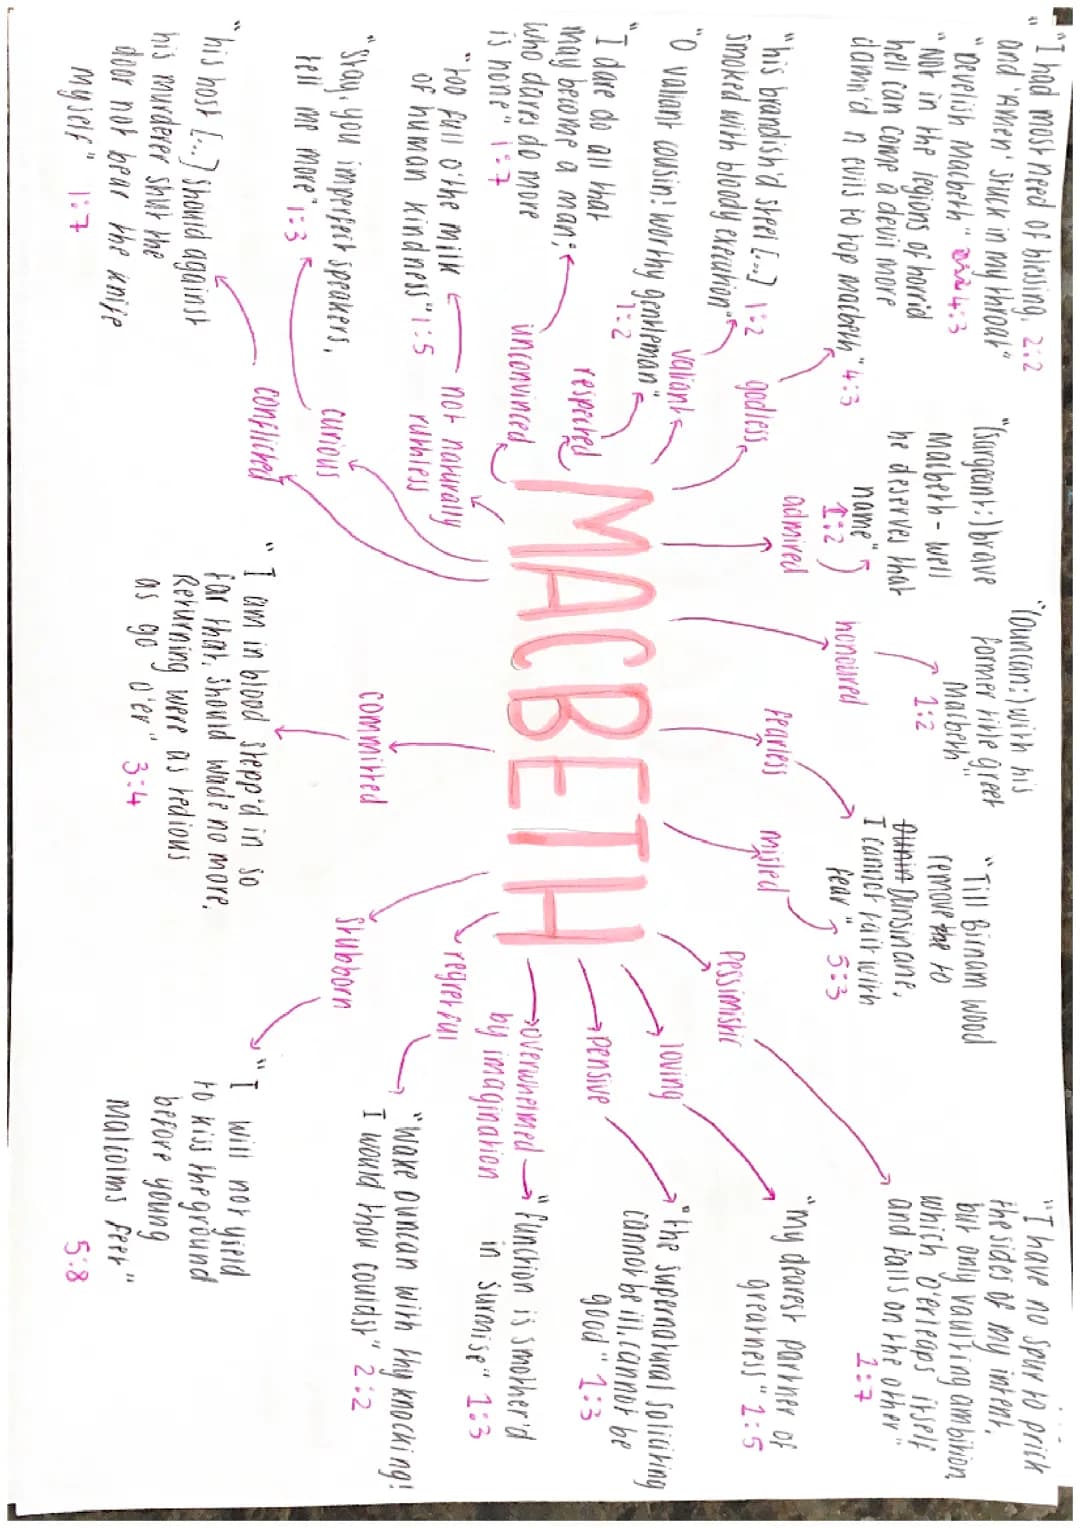 "I had most need of blessing, 2:2
and 'Amen' stuck in my throat"
"Develish macbeth" 4:3
"Not in the legions of horrid
hell can come a devil more
damn'd n evils to top macbeth" 4:3
godless
"his brandish'd steel [...] 1:2
smoked with bloody execution"
valiant
"O valiant cousin! worthy gentleman"
1:2
respected
"I dare do all that
may become a man;
who dares do more
is none" 1:7
unconvinced
"too full o'the milk
of human kindness" 1:5
not naturally
ruthless
"Stay, you imperfect speakers,
tell me more" 1:3
curious
"his host [...] should against
his murderer shut the
door not bear the knife
myself" 1:7
conflicted
"(sargeant:) brave
macbeth - well
he deserves that
name"
1:2
admired
"(Duncan:) with his
former title greet
Macbeth"
1:2
honoured
fearless
"Till Birnam wood
remove to
Dunsinane,
I cannot taint with
fear" 5:3
misled
MACBETH
pessimistic
"I have no spur to prick
the sides of my intent,
but only vaulting ambition
which O'erleaps itself
and falls on the other"
1:7
loving
"my dearest partner of
greatness" 1:5
pensive
"the supernatural soliciting
cannot be ill, cannot be
good" 1:3
overwhelmed
by imagination
"function is smother'd
in surmise" 1:3
regretful
"Wake duncan with thy knocking!
I would thou couldst" 2:2
committed
"I am in blood stepp'd in so
far that, should wade no more,
Returning were as tedious
as go o'er" 3:4
stubborn
"I will not yield
to kiss the ground
before young
malcolms feet"
5:8